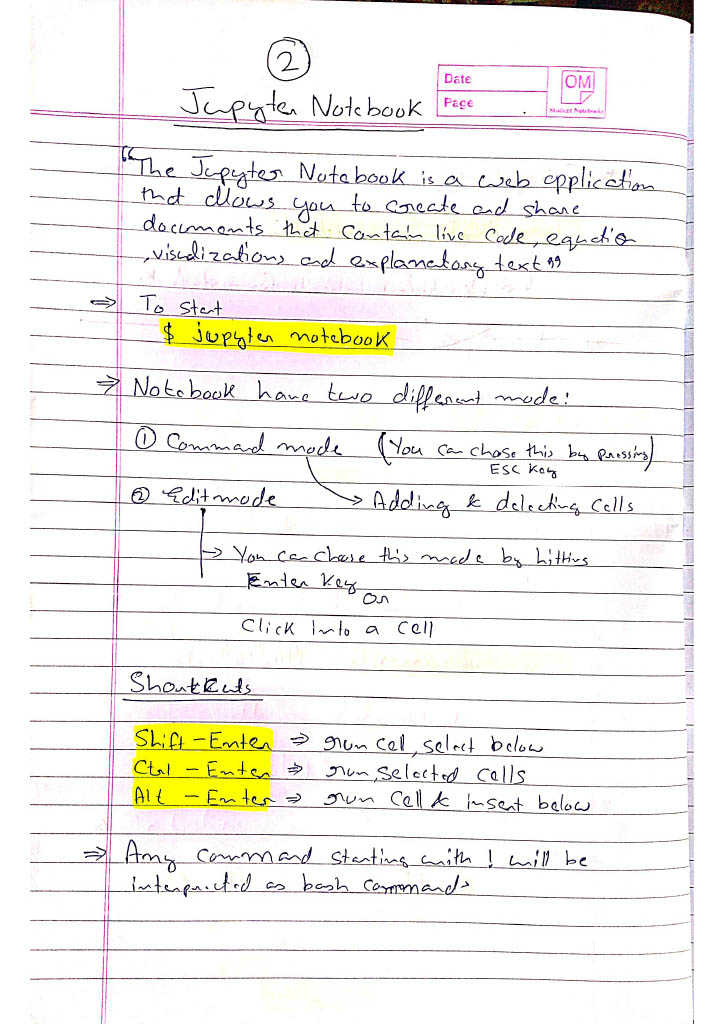 2
Jupyter Notebook
Date
Page
OM
Student Notebooks
"The Jupyter Notebook is a web application
that allows you to create and share
documents that contain live code, equatio
, visualizations and explanatory text"
⇒ To start
$ jupyter notebook
⇒ Notebook have two different mode:
① Command mode (You can chose this by pressing)
ESC Key
② Edit mode → Adding & delecting cells
→ You can chose this mode by hitting
Enter Key
or
Click into a cell
Shortkuts
Shift - Enter ⇒ run cell, select below
Ctrl - Enter ⇒ run, selected cells
Alt - Enter ⇒ run cell & insert below
⇒ Any command starting with ! will be
interpreted as bash commands